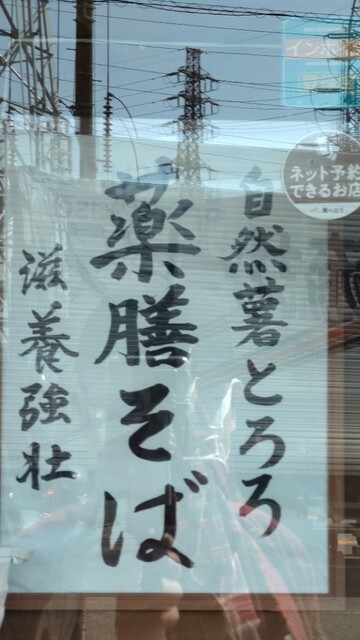 自然薯とろろ
薬膳そば
滋養強壮
ネット予約
できるお店
食べログ